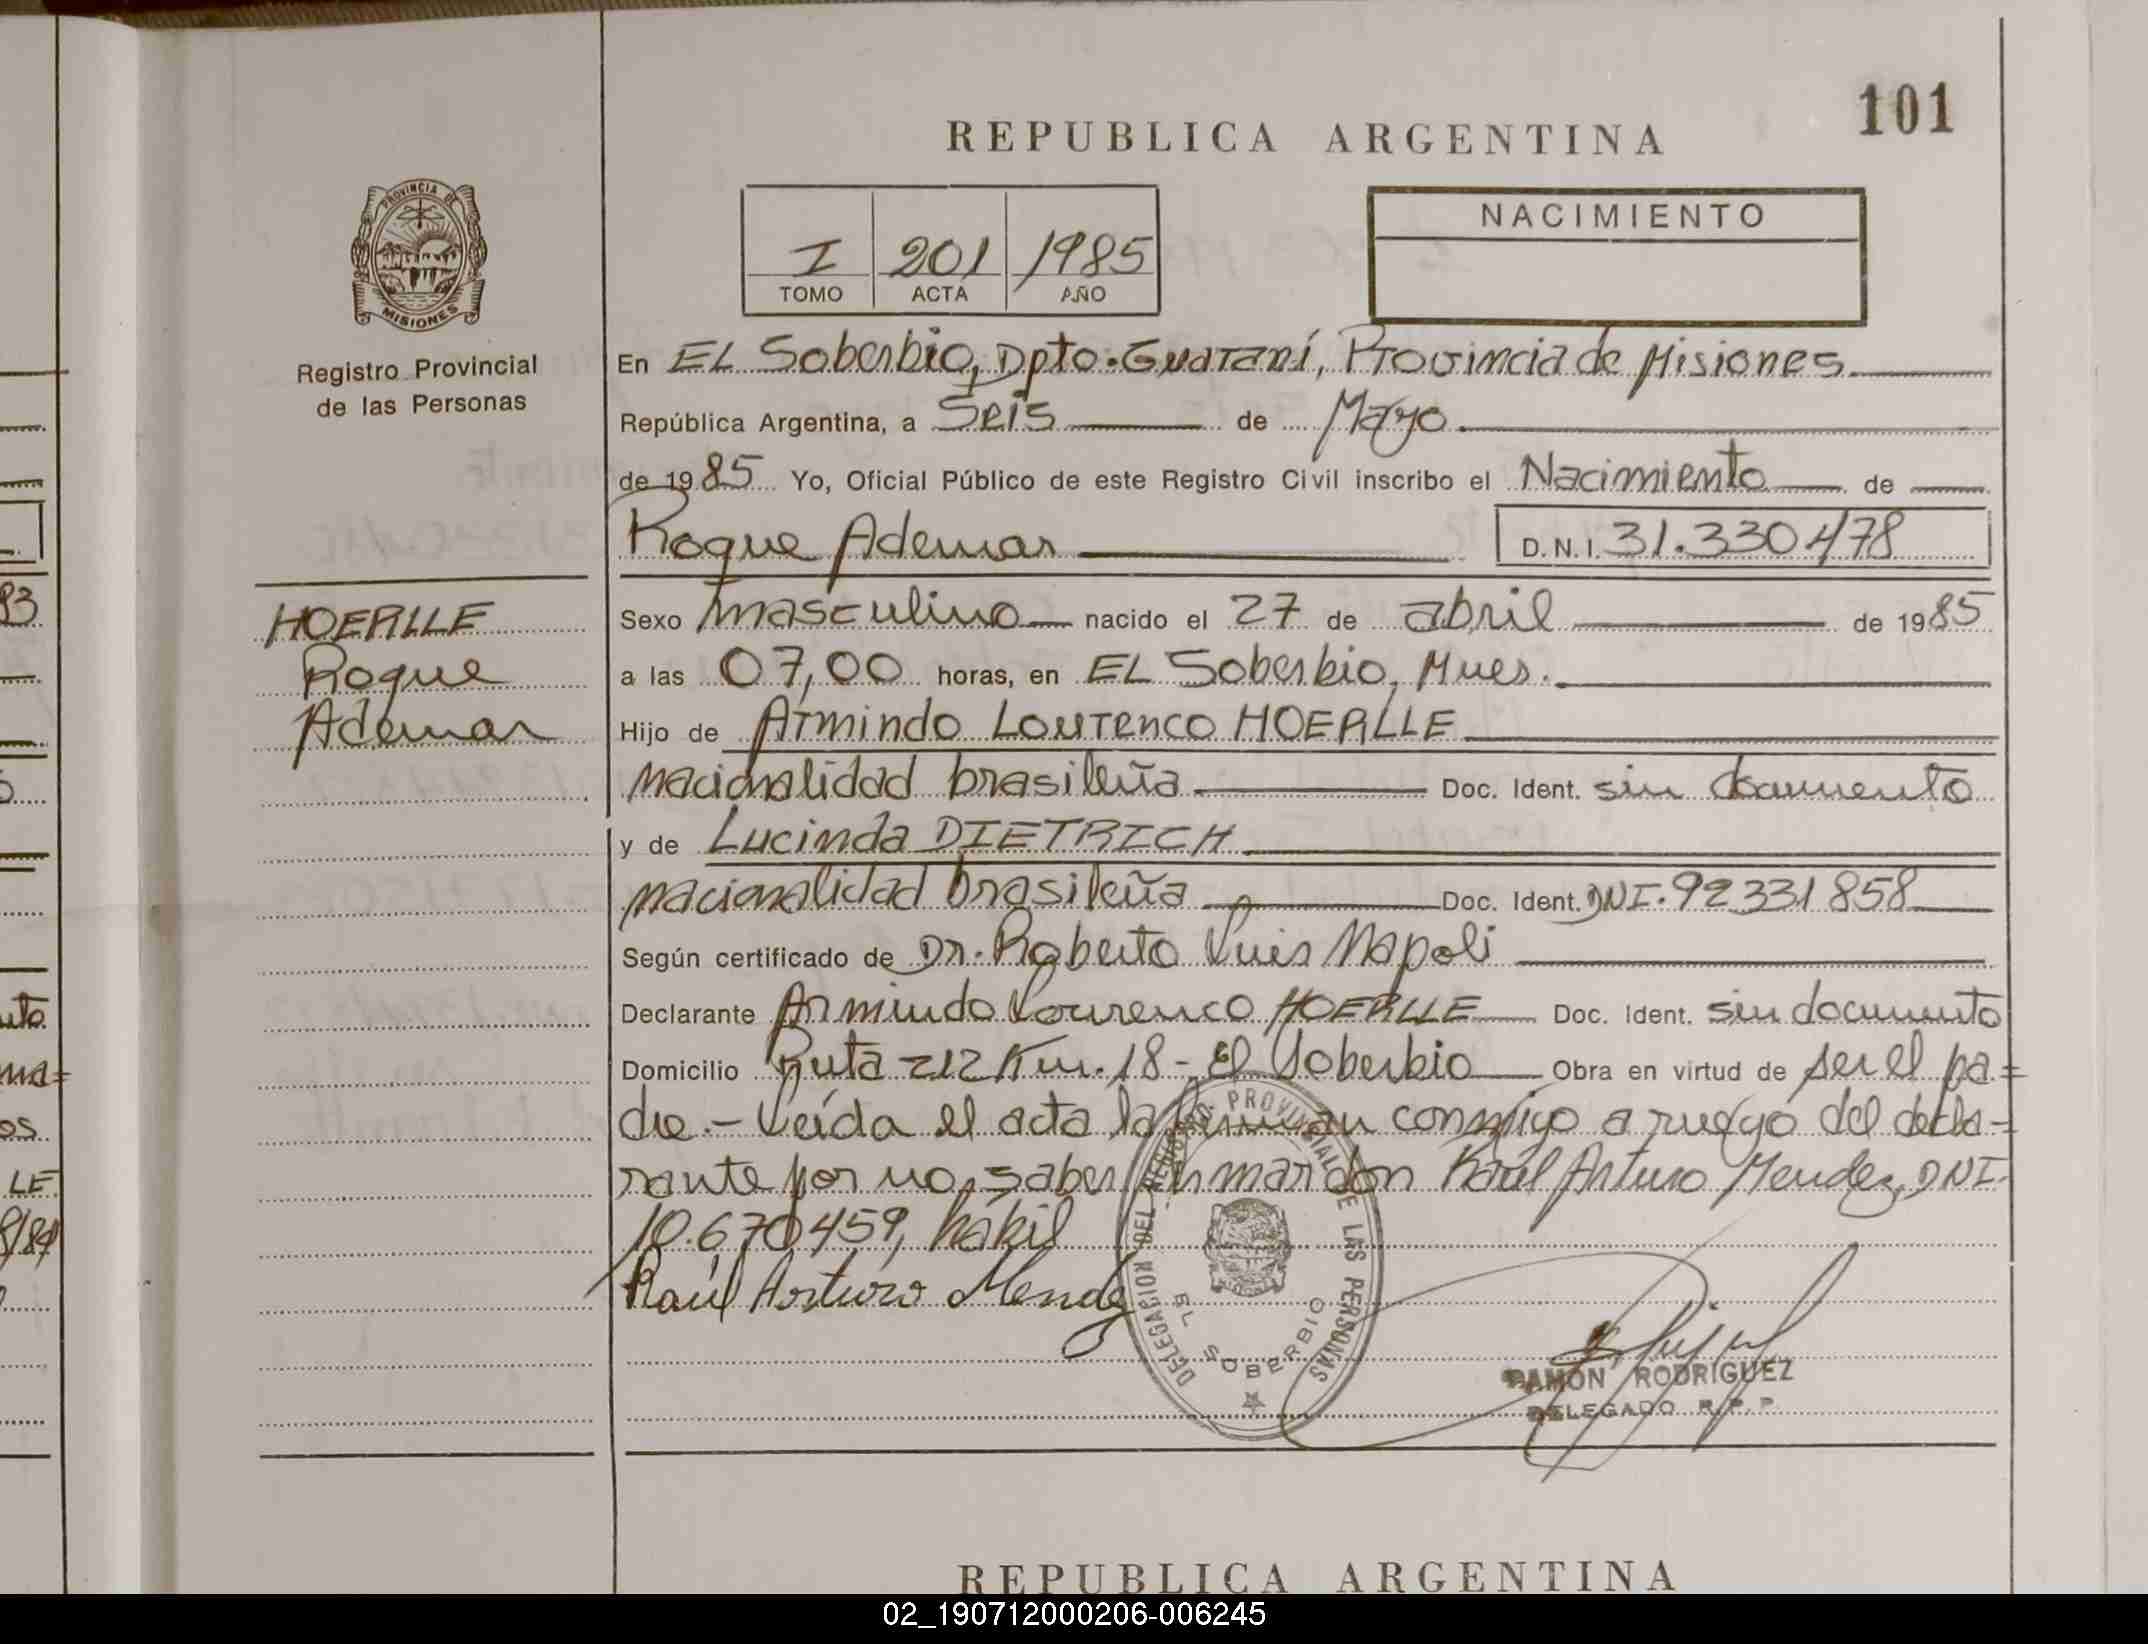 101
REPUBLICA ARGENTINA
I 201 1985
TOMO ACTA AÑO
NACIMIENTO
PROVINCIA DE
MISIONES
Registro Provincial
de las Personas
En EL Soberbio, Dpto. Guaraní, Provincia de Misiones
República Argentina, a Seis de Mayo
de 1985 Yo, Oficial Público de este Registro Civil inscribo el Nacimiento de
Roque Ademar D.N.I. 31.330478
HOERLLE
Roque
Ademar
Sexo masculino nacido el 27 de abril de 1985
a las 07,00 horas, en EL Soberbio, Mnes.
Hijo de Armindo Lourenco HOERLLE
nacionalidad brasileña Doc. Ident. sin documento
y de Lucinda DIETRICH
nacionalidad brasileña Doc. Ident. DNI. 92331858
Según certificado de Dr. Roberto Luis Napoli
Declarante Armindo Lourenco HOERLLE Doc. Ident. sin documento
Domicilio Ruta 212 Km. 18 - El Soberbio Obra en virtud de ser el pa=
dre.- Leída el acta la firman conmigo a ruego del decla-
rante por no saber firmar don Raúl Arturo Mendez, DNI.
10.670459, hábil
Raúl Arturo Mendez
DELEGACION DEL REGISTRO PROVINCIAL DE LAS PERSONAS
EL SOBERBIO
RAMON RODRIGUEZ
DELEGADO R.P.P
REPUBLICA ARGENTINA
02_190712000206-006245